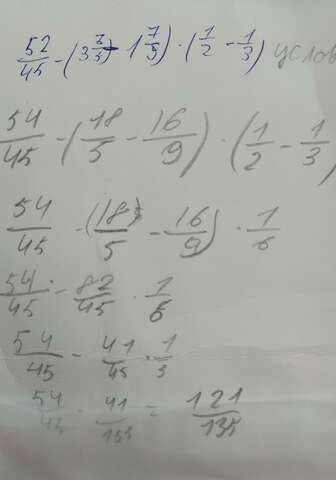 52/45 - (3 3/5 - 1 7/9) · (1/2 - 1/3) услов
54/45 - (18/5 - 16/9) · (1/2 - 1/3)
54/45 - (18/5 - 16/9) · 1/6
54/45 - 82/45 · 1/6
54/45 - 41/45 · 1/3
54/45 - 41/135 = 121/135